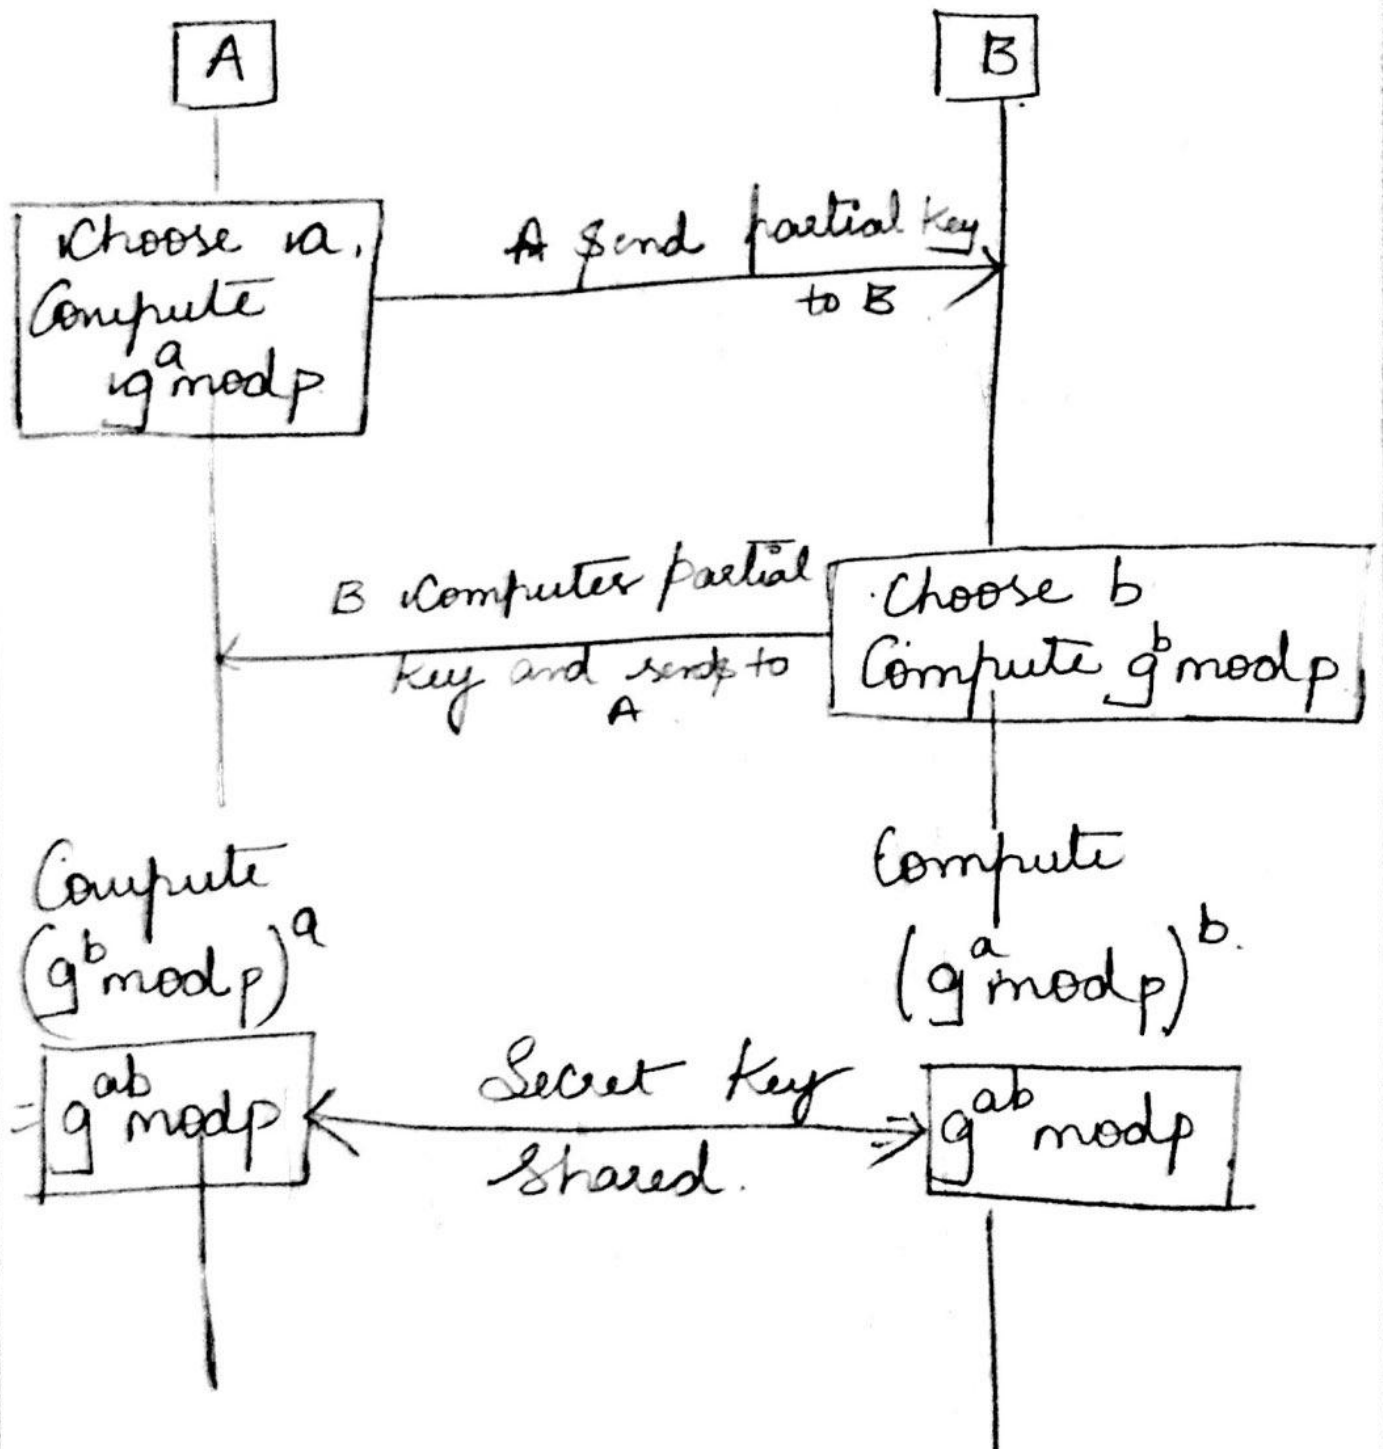 A
B
Choose a,
Compute
g^a mod p
A send partial key
to B
B computes partial
key and sends to
A
Choose b
Compute g^b mod p
Compute
(g^b mod p)^a
= g^ab mod p
Compute
(g^a mod p)^b.
g^ab mod p
Secret key
shared.